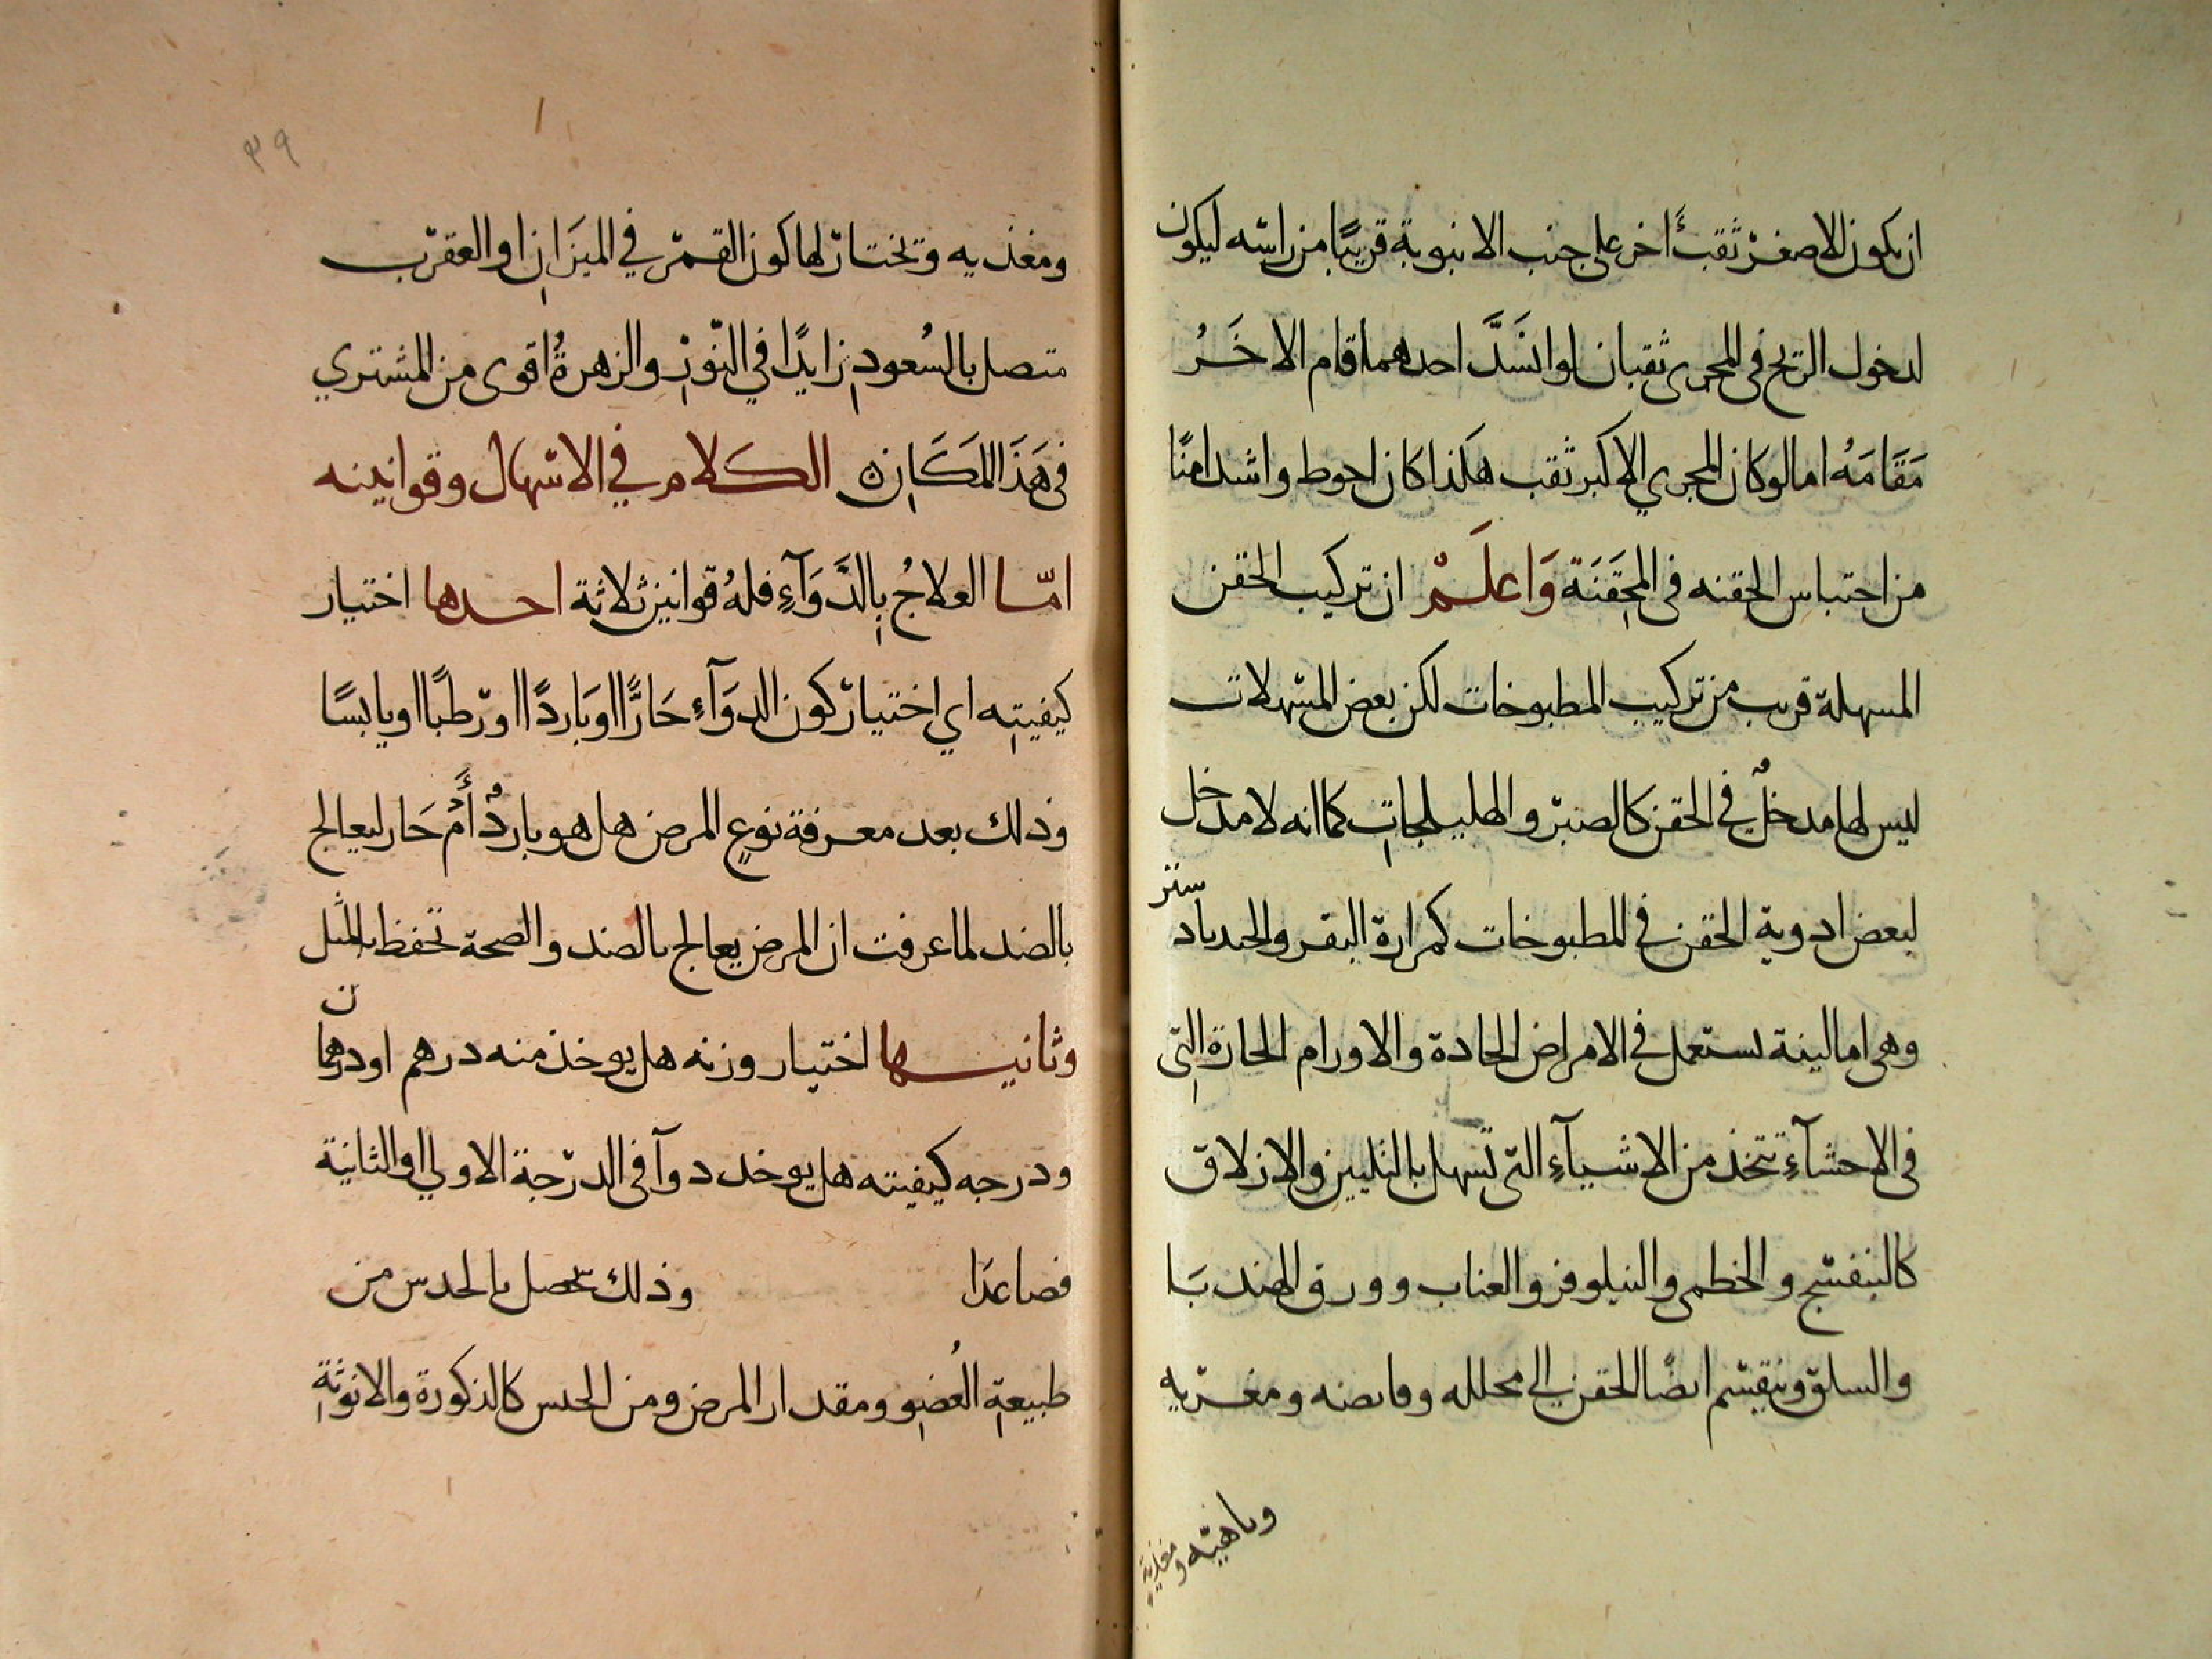 ان يكون للاصغر ثقبًا اخر على جنب الانبوبة قريبًا من راسه ليكون
لدخول الريح فى المجرى ثقبان لو انسَدَّ احدهما قام الاخَرُ
مَقَامَهُ اما لو كان المجري الاكبر ثقب هكذا كان احوط واشد امنًا
من احتباس الحقنه فى المِحقَنَة وَاعلَمْ ان تركيب الحقن
المسهلة قريب من تركيب المطبوخات لكن بعض المسهلات
ليس لها مدخلٌ في الحقن كالصبر والهليلجاتِ كما انه لا مدخل
لبعض ادوية الحقن في المطبوخات كمرارة البقر والجندبادستر
وهى اما لينة تستعمل في الامراض الحادة والاورام الحارة التِى
فى الاحشآءِ تتخذ من الاشيآءِ التى تسهل بالتليين والازلاق
كالبنفسج والخطمى والنيلوفر والعناب وورق الهندبَا
والسلق وينقسم ايضًا الحقن الي محلله وقابضه ومغريه
وماهيّه ومغذية
٣٩
ومغذيه وتختار لها كون القمر في الميزَانِ او العقرب
متصل بالسُعودِ زايدًا في النّورِ والزهرةُ اقوى من المشتري
فى هَذَا المَكَانِ الكلام في الاسهال وقوانينه
امّا العلاجُ بِالدَّوَآءِ فلهُ قوانين ثلاثة احدها اختيار
كيفيتِه اي اختيار كون الدوَآءِ حَارًّا او بَاردًا او رطبًا او يابسًا
وذلك بعد معرفة نوعِ المرض هل هو باردٌ أَمْ حَار ليعالج
بالضد لما عرفت ان المرض يعالج بالضد والصحة تحفظ بالمثل
وثانيها اختيار وزنه هل يوخذ منه درهم او درهمان
ودرجه كيفيته هل يوخد دوآ فى الدرجة الاولي او الثانية
فصاعدَا وذلك يحصل بالحدس من
طبيعةِ العُضوِ ومقدار المرض ومن الجنس كالذكورة والانوثةِ